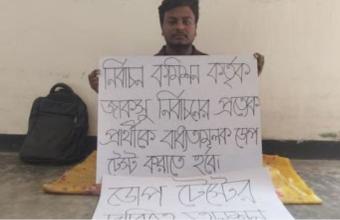 নির্বাচন কমিশন কর্তৃক
জাকসু নির্বাচনের প্রত্যেক
প্রার্থীকে বাধ্যতামূলক ডোপ
টেস্ট করাতে হবে।
ডোপ টেস্টের